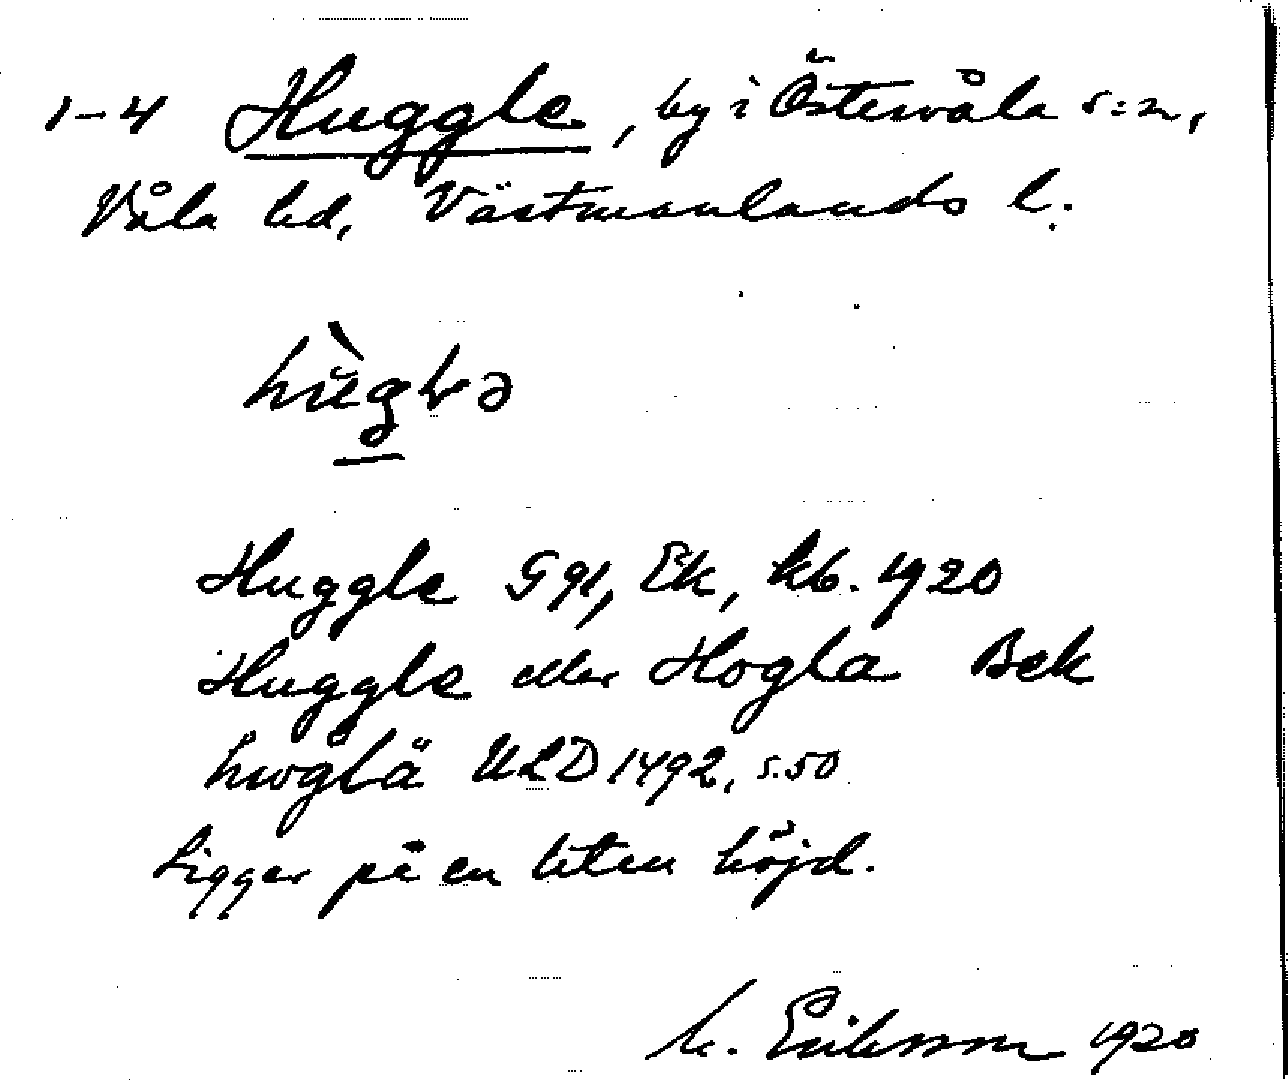 1-4 Huggle, by i Östervåla s:n,
Våla hd, Västmanlands l.
Huggle G 91, Ek, kb. 1920
Huggle eller Hogla Bek
hwglä ULD 1492, s. 50
Ligger på en liten höjd.
M. Eriksson 1920